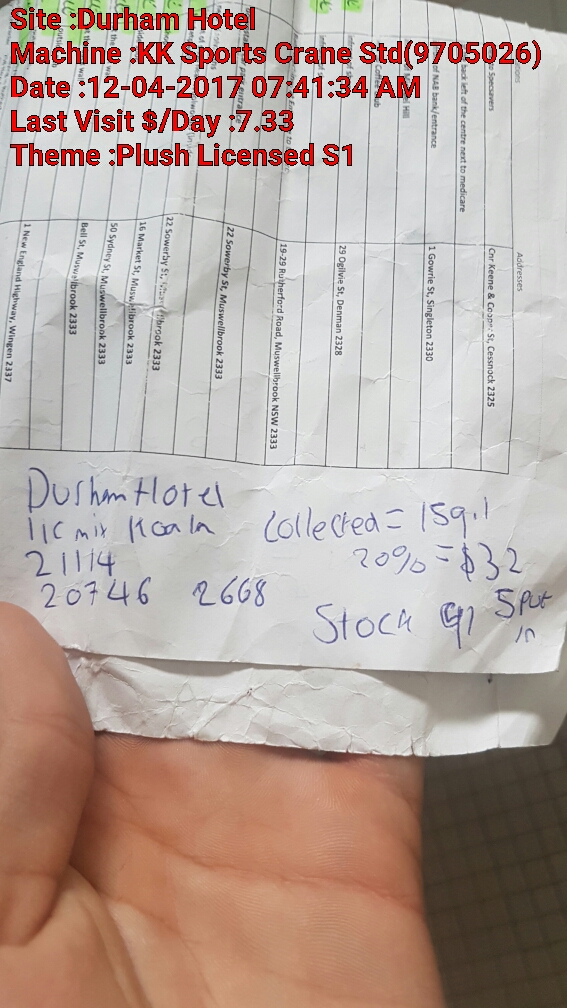 Site :Durham Hotel
Machine :KK Sports Crane Std(9705026)
Date :12-04-2017 07:41:34 AM
Last Visit $/Day :7.33
Theme :Plush Licensed S1
Specsavers
back left of the centre next to medicare
of NAB bank/entrance
Hill
Addresses
Cnr Keene & Cooper St, Cessnock 2325
1 Gowrie St, Singleton 2330
29 Ogilvie St, Denman 2328
19-29 Rutherford Road, Muswellbrook NSW 2333
22 Sowerby St, Muswellbrook 2333
22 Sowerby St, Muswellbrook 2333
16 Market St, Muswellbrook 2333
50 Sydney St, Muswellbrook 2333
Bell St, Muswellbrook 2333
1 New England Highway, Wingen 2337
Durham Hotel
lic mix Koala
Collected = 159.1
21114
20% = $32
20746 2668
Stock 91 5 put
in